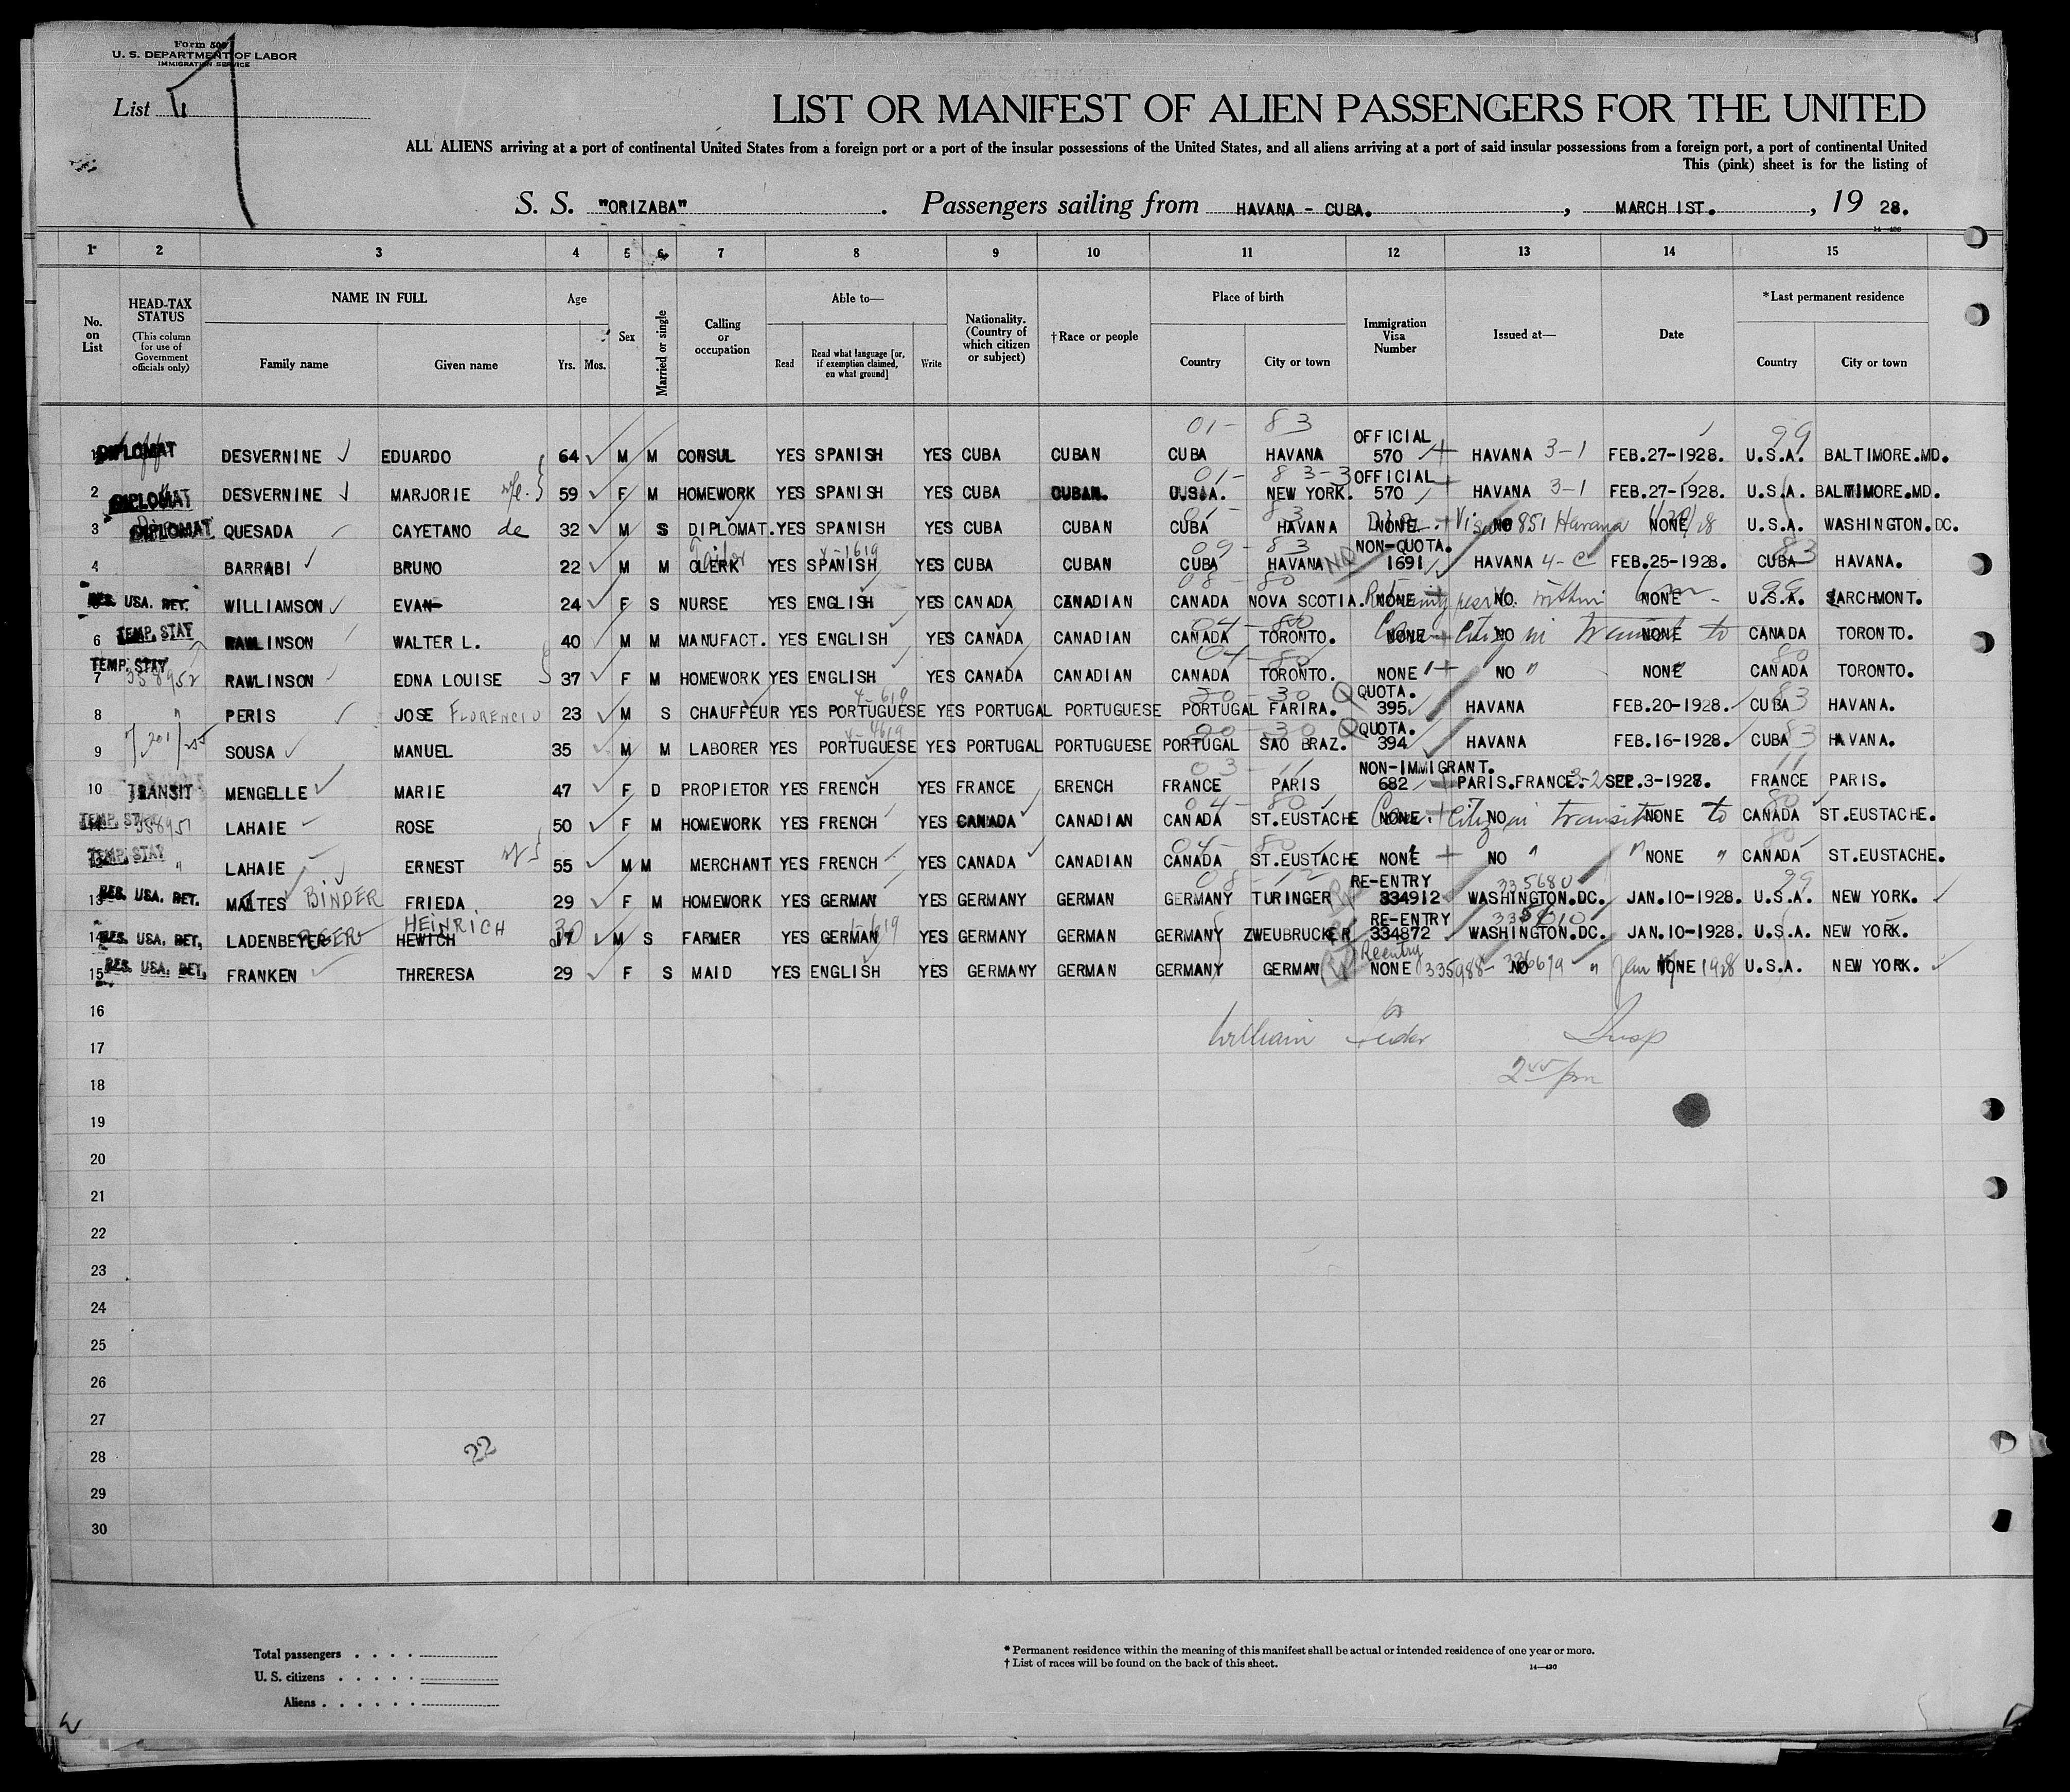 Form 500
U. S. DEPARTMENT OF LABOR
IMMIGRATION SERVICE
List
LIST OR MANIFEST OF ALIEN PASSENGERS FOR THE UNITED
ALL ALIENS arriving at a port of continental United States from a foreign port or a port of the insular possessions of the United States, and all aliens arriving at a port of said insular possessions from a foreign port, a port of continental United
This (pink) sheet is for the listing of
S. S. "ORIZABA" . Passengers sailing from HAVANA - CUBA. , MARCH 1ST. , 19 28.
1 2 3 4 5 6 7 8 9 10 11 12 13 14 15
No. on List HEAD-TAX STATUS (This column for use of Government officials only) NAME IN FULL Family name Given name Age Yrs. Mos. Sex Married or single Calling or occupation Able to— Read Read what language [or, if exemption claimed, on what ground] Write Nationality. (Country of which citizen or subject) †Race or people Place of birth Country City or town Immigration Visa Number Issued at— Date *Last permanent residence Country City or town
01- 83 OFFICIAL 99
DIPLOMAT DESVERNINE EDUARDO 64 M M CONSUL YES SPANISH YES CUBA CUBAN CUBA HAVANA 570 HAVANA 3-1 FEB.27-1928. U.S.A. BALTIMORE.MD.
01- 83-3 OFFICIAL
2 DIPLOMAT DESVERNINE MARJORIE wfe. 59 F M HOMEWORK YES SPANISH YES CUBA CUBAN. U.S.A. NEW YORK. 570 HAVANA 3-1 FEB.27-1928. U.S.A. BALTIMORE.MD.
01- 83
3 DIPLOMAT QUESADA CAYETANO de 32 M S DIPLOMAT. YES SPANISH YES CUBA CUBAN CUBA HAVANA NONE Visa NO 851 Havana NONE U.S.A. WASHINGTON.DC.
Tailor 4-1619 09- 83 NON-QUOTA. 83
4 BARRABI BRUNO 22 M M CLERK YES SPANISH YES CUBA CUBAN CUBA HAVANA 1691 HAVANA 4-C FEB.25-1928. CUBA HAVANA.
08- 80 99
RES. USA. RET. WILLIAMSON EVAN 24 F S NURSE YES ENGLISH YES CANADA CANADIAN CANADA NOVA SCOTIA. NONE NO. within NONE U.S.A. LARCHMONT.
TEMP. STAY 04- 80
6 RAWLINSON WALTER L. 40 M M MANUFACT. YES ENGLISH YES CANADA CANADIAN CANADA TORONTO. NONE Citiz NO in transit NONE to CANADA TORONTO.
TEMP. STAY 04- 80 80
7 358952 RAWLINSON EDNA LOUISE 37 F M HOMEWORK YES ENGLISH YES CANADA CANADIAN CANADA TORONTO. NONE " NO " NONE " CANADA TORONTO.
4-619 30 QUOTA. 83
8 " PERIS JOSE FLORENCIO 23 M S CHAUFFEUR YES PORTUGUESE YES PORTUGAL PORTUGUESE PORTUGAL FARIRA. 395 HAVANA FEB.20-1928. CUBA HAVANA.
4-4619 30 QUOTA. 83
9 SOUSA MANUEL 35 M M LABORER YES PORTUGUESE YES PORTUGAL PORTUGUESE PORTUGAL SAO BRAZ. 394 HAVANA FEB.16-1928. CUBA HAVANA.
03- 11 NON-IMMIGRANT. 11
10 TRANSIT MENGELLE MARIE 47 F D PROPIETOR YES FRENCH YES FRANCE GRENCH FRANCE PARIS 682 PARIS.FRANCE. 3-2 SEP.3-1927. FRANCE PARIS.
04- 80 80
TEMP. STAY 358951 LAHAIE ROSE 50 F M HOMEWORK YES FRENCH YES CANADA CANADIAN CANADA ST.EUSTACHE NONE. Citiz NO in transit NONE to CANADA ST.EUSTACHE.
TEMP. STAY 04- 80 80
" LAHAIE ERNEST 55 M M MERCHANT YES FRENCH YES CANADA CANADIAN CANADA ST.EUSTACHE NONE " NO " " NONE " CANADA ST.EUSTACHE.
08- 12 RE-ENTRY 335680 99
13 RES. USA. RET. MATTES BINDER FRIEDA 29 F M HOMEWORK YES GERMAN YES GERMANY GERMAN GERMANY TURINGER 334912 WASHINGTON.DC. JAN.10-1928. U.S.A. NEW YORK.
HEINRICH 30 619 RE-ENTRY
14 RES. USA. RET. LADENBEYER BERGER HEWICH 17 M S FARMER YES GERMAN YES GERMANY GERMAN GERMANY ZWEUBRUCKER 334872 WASHINGTON.DC. JAN.10-1928. U.S.A. NEW YORK.
Reentry
15 RES. USA. RET. FRANKEN THRERESA 29 F S MAID YES ENGLISH YES GERMANY GERMAN GERMANY GERMAN NONE 335988- NO 336679 " Jan NONE 1928 U.S.A. NEW YORK.
16
17 William Insp
18 2 45/pm
19
20
21
22
23
24
25
26
27
28 22
29
30
Total passengers
U. S. citizens
Aliens
* Permanent residence within the meaning of this manifest shall be actual or intended residence of one year or more.
† List of races will be found on the back of this sheet.
14—430